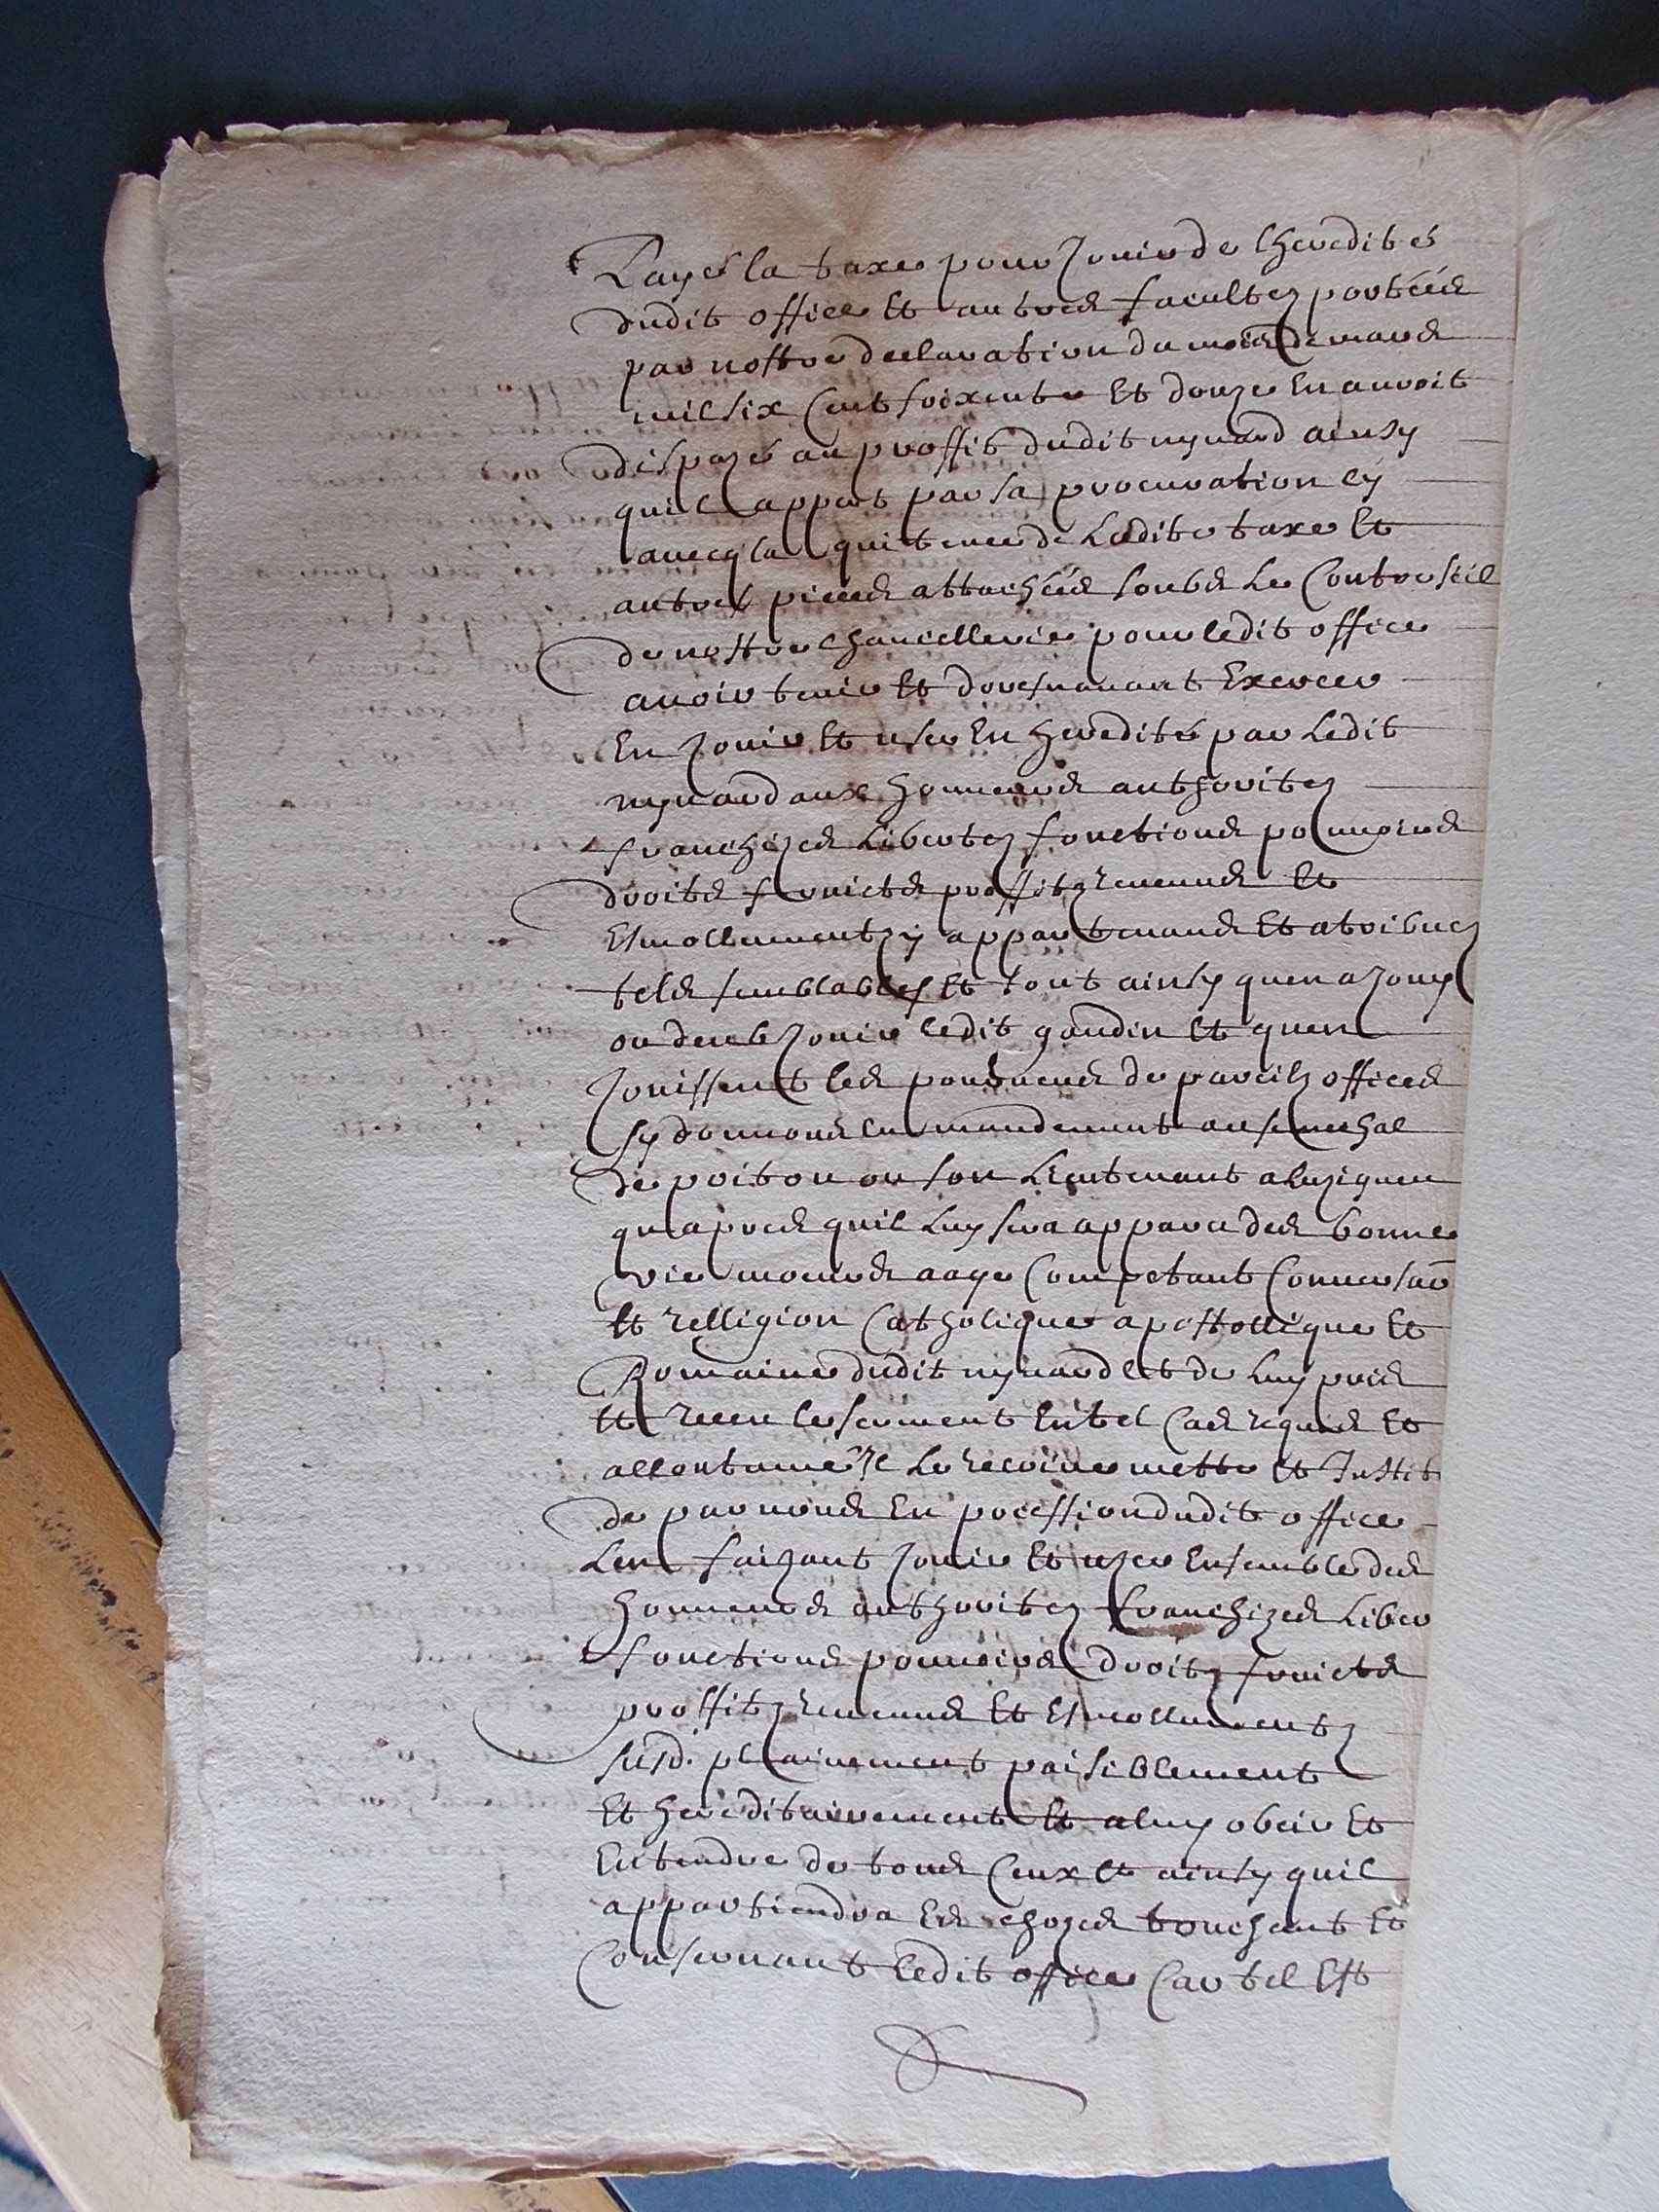 Payé la taxe pour Jouir de lheredité
dudit office Et autres facultez portées
par nostre declaration du mois de mars
mil six Cent soixente Et douze En auroit
dispozé au proffit dudit mynard ainsy
quil appert par sa procuration cy
avecq la quitence de Ladite taxe Et
autres pieces attachées soubs Le Contreseel
de nostre chancellerie pour ledit office
avoir tenir Et doresnavant Exercer
En Jouir Et user En heredité par Ledit
mynard aux honneurs authoritez
franchizes Libertez fonctions pouvoirs
droits fruicts proffitz revenus Et
Esmollumentz y appartenans Et atribuez
tels semblables Et tout ainsy quen a Jouy
ou deub Jouir ledit gaudin Et quen
Jouissent les pourveus de pareilz offices
sy donnons En mandement au senechal
de poitou ou son Lieutenant a luzignen
quapres quil Luy sera apparu des bonne
vie moeurs aage Competant Conversaõn
Et relligion Catholique apostollique Et
Romaine dudit mynard Et de Luy pris
Et receu le serment En tel Cas requis Et
accoutumé Il Le recoive mette Et Instit
de par nous En pocession dudit office
Len faizant Jouir Et uzer Ensemble des
honneurs authoritez franchizes Liber
fonctions pouvoirs droitz fruicts
proffitz revenus Et Esmollumentz
susd. plainement paisiblement
Et hereditairement Et a luy obeir Et
Entendre de tous Ceux Et ainsy quil
appartiendra Es chozes touchant Et
Conservant Ledit office Car tel Est